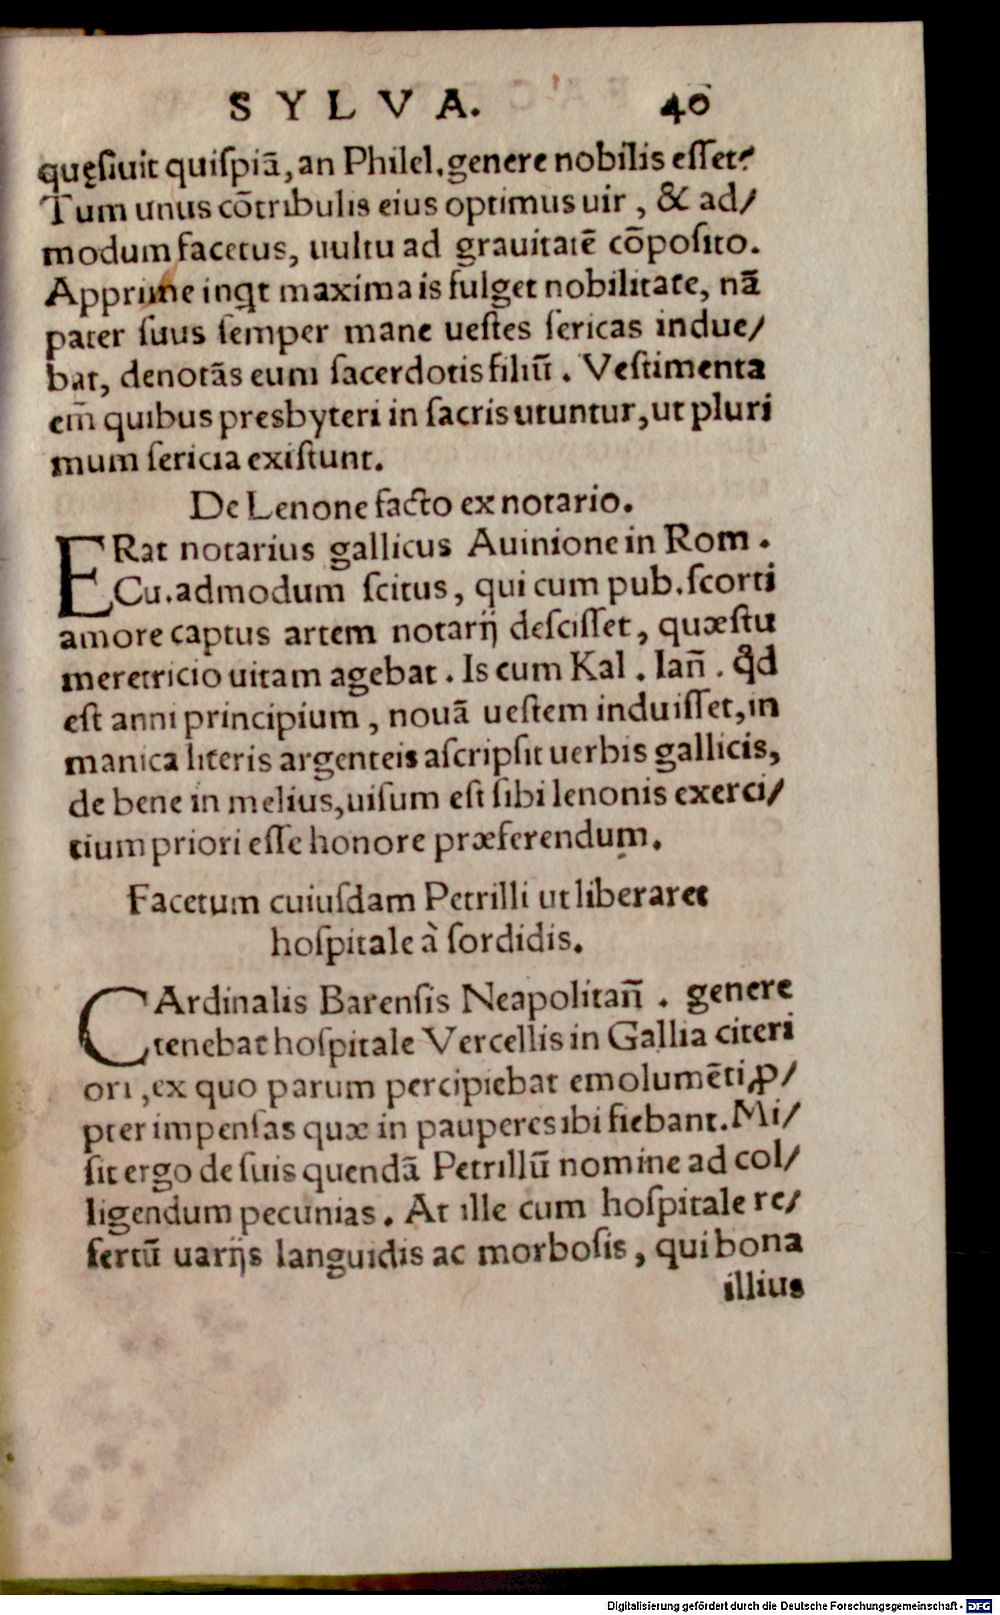 SYLVA. 40
quęsiuit quiſpiã, an Philel. genere nobilis eſſet?
Tum unus cõtribulis eius optimus uir, & ad/
modum facetus, uultu ad grauitatẽ cõpoſito.
Apprime inqt maxima is fulget nobilitate, nã
pater ſuus ſemper mane ueſtes ſericas indue/
bat, denotãs eum ſacerdotis filiũ. Veſtimenta
em̃ quibus presbyteri in ſacris utuntur, ut pluri
mum ſericia exiſtunt.
De Lenone facto ex notario.
ERat notarius gallicus Auinione in Rom.
Cu. admodum ſcitus, qui cum pub. ſcorti
amore captus artem notarij deſciſſet, quæſtu
meretricio uitam agebat. Is cum Kal. Iañ. qd̃
eſt anni principium, nouã ueſtem induiſſet, in
manica literis argenteis aſcripſit uerbis gallicis,
de bene in melius, uiſum eſt ſibi lenonis exerci/
tium priori eſſe honore præferendum.
Facetum cuiuſdam Petrilli ut liberaret
hoſpitale à ſordidis.
CArdinalis Barenſis Neapolitañ. genere
tenebat hoſpitale Vercellis in Gallia citeri
ori, ex quo parum percipiebat emolumẽti ꝓ/
pter impenſas quæ in pauperes ibi fiebant. Mi/
ſit ergo de ſuis quendã Petrillũ nomine ad col/
ligendum pecunias. At ille cum hoſpitale re/
fertũ uarijs languidis ac morboſis, qui bona
illius
Digitalisierung gefördert durch die Deutsche Forschungsgemeinschaft - DFG